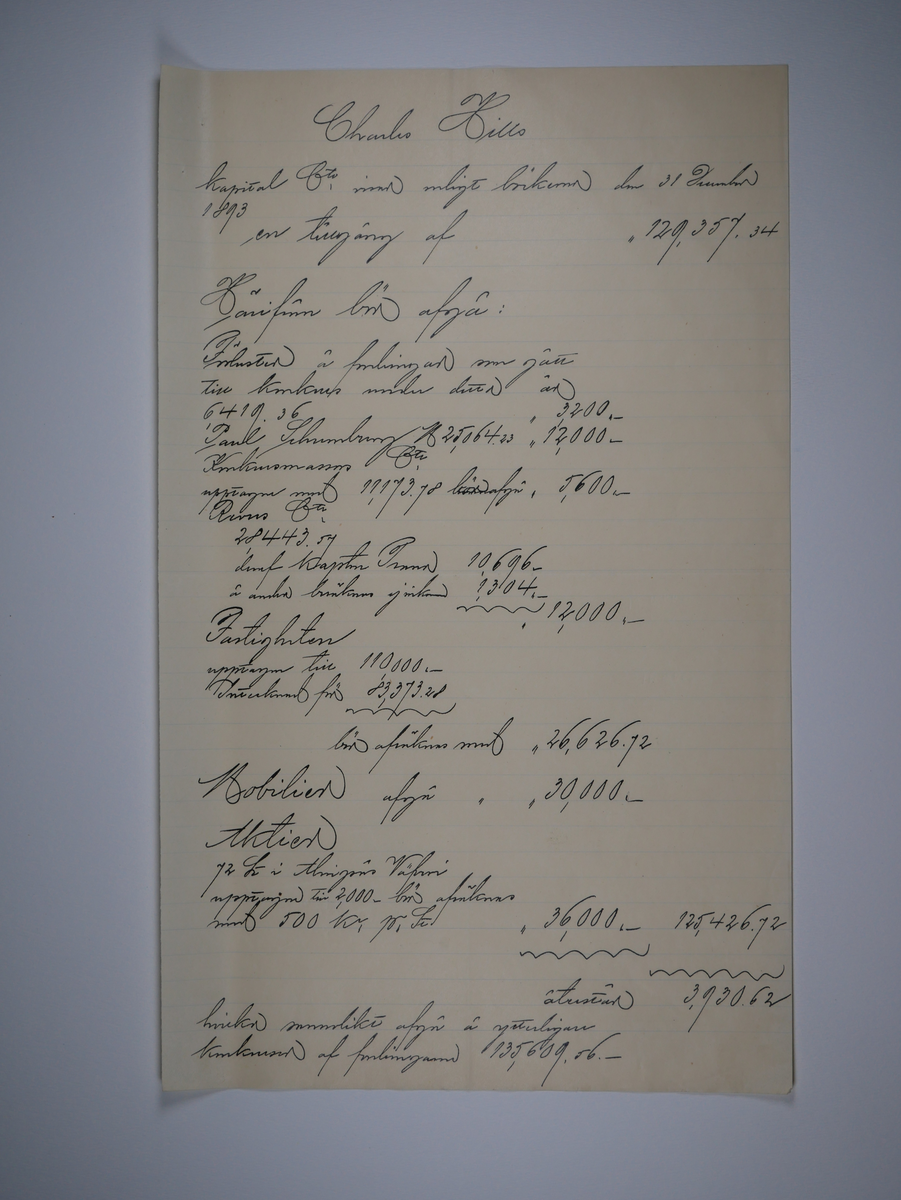 Charles Hills
kapital Cto. visar enligt böckerna den 31 December
1893
en tillgång af " 129,357.34
Härifrån bör afgå:
Förluster å fordringar som gått
till konkurs under detta år
6419.36 " 3200.–
Paul Schumburg M 25,064.23 " 12,000–
Konkursmassors Cto.
upptagna med 11,173.78 afgå " 5,600.–
Cto.
28443.57
deraf Kapten 10,696–
å andra 1,304.–
" 12,000.–
Fastigheten
upptagen till 110,000.–
Inteknad för 83,373.28
bör afräknas med " 26,626.72
Mobilier afgå " " 30,000.–
Aktier
72 St i Alingsås Väfveri
upptagna till 2,000– bör afräknas
med 500 Kr. pr. St. " 36,000.– 125,426.72
återstår 3,930.62
hvilka sannolikt afgå å ytterligare
konkurser af fordringarne 135,609.56.–